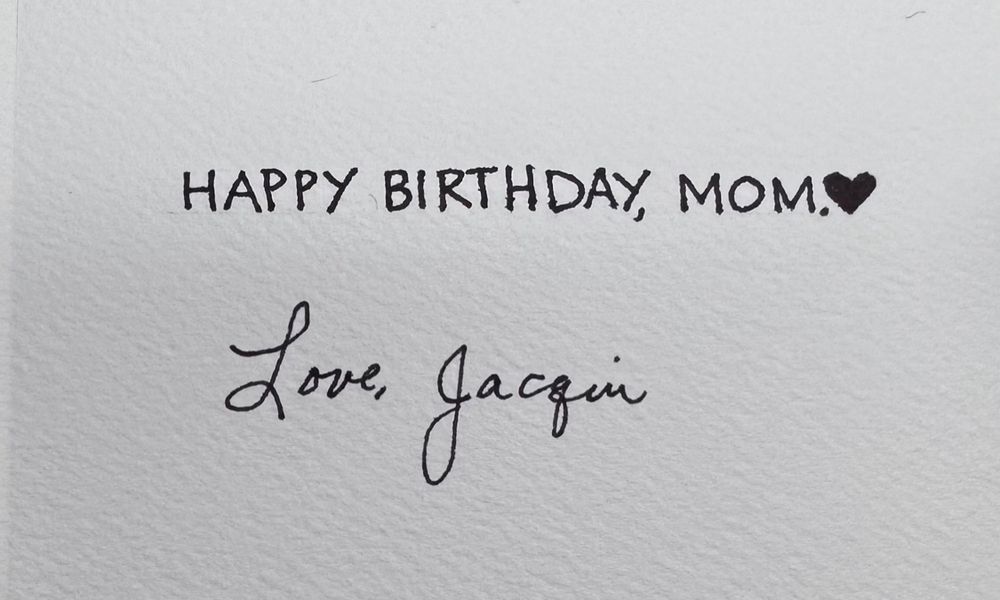 HAPPY BIRTHDAY, MOM.♥
Love, Jacquin